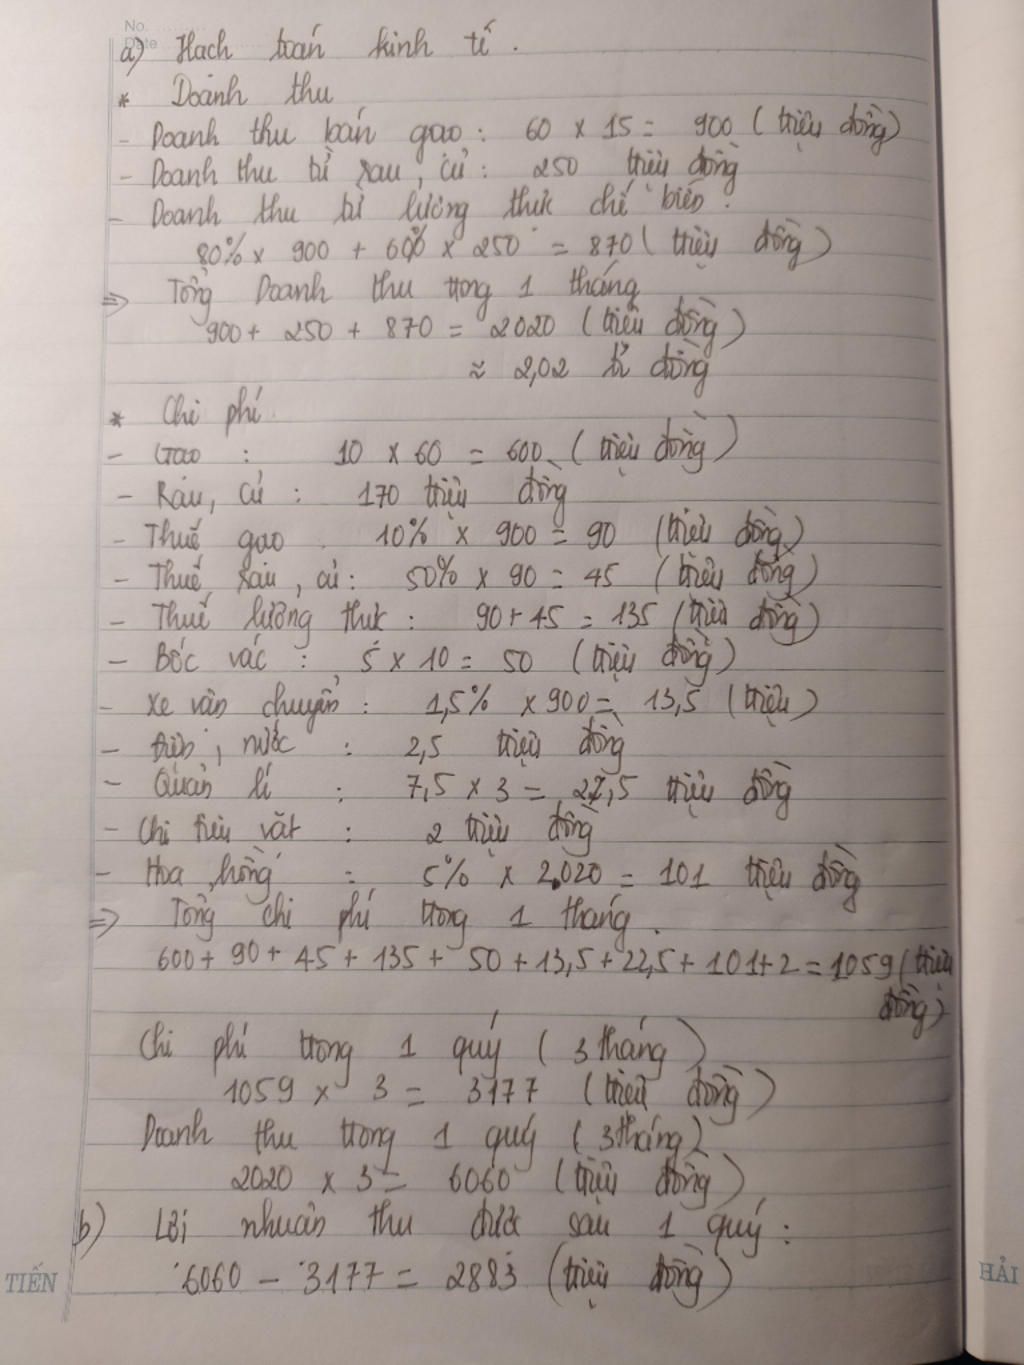 No.
Date
a) Hạch toán kinh tế.
* Doanh thu
- Doanh thu bán gạo: 60 x 15 = 900 (triệu đồng)
- Doanh thu từ rau, củ: 250 triệu đồng
- Doanh thu từ lương thực chế biến:
80% x 900 + 60% x 250 = 870 (triệu đồng)
=> Tổng Doanh thu trong 1 tháng
900 + 250 + 870 = 2020 (triệu đồng)
≈ 2,02 tỉ đồng
* Chi phí
- Gạo : 10 x 60 = 600 (triệu đồng)
- Rau, củ : 170 triệu đồng
- Thuế gạo : 10% x 900 = 90 (triệu đồng)
- Thuế rau, củ: 50% x 90 = 45 (triệu đồng)
- Thuế lương thực : 90 + 45 = 135 (triệu đồng)
- Bốc vác : 5 x 10 = 50 (triệu đồng)
- Xe vận chuyển : 1,5% x 900 = 13,5 (triệu)
- Điện, nước : 2,5 triệu đồng
- Quản lí : 7,5 x 3 = 22,5 triệu đồng
- Chi tiêu vặt : 2 triệu đồng
- Hoa hồng : 5% x 2.020 = 101 triệu đồng
=> Tổng chi phí trong 1 tháng.
600 + 90 + 45 + 135 + 50 + 13,5 + 22,5 + 101 + 2 = 1059 (triệu
đồng)
Chi phí trong 1 quý (3 tháng)
1059 x 3 = 3177 (triệu đồng)
Doanh thu trong 1 quý (3 tháng)
2020 x 3 = 6060 (triệu đồng)
b) Lợi nhuận thu được sau 1 quý:
6060 - 3177 = 2883 (triệu đồng)
TIẾN
HẢI